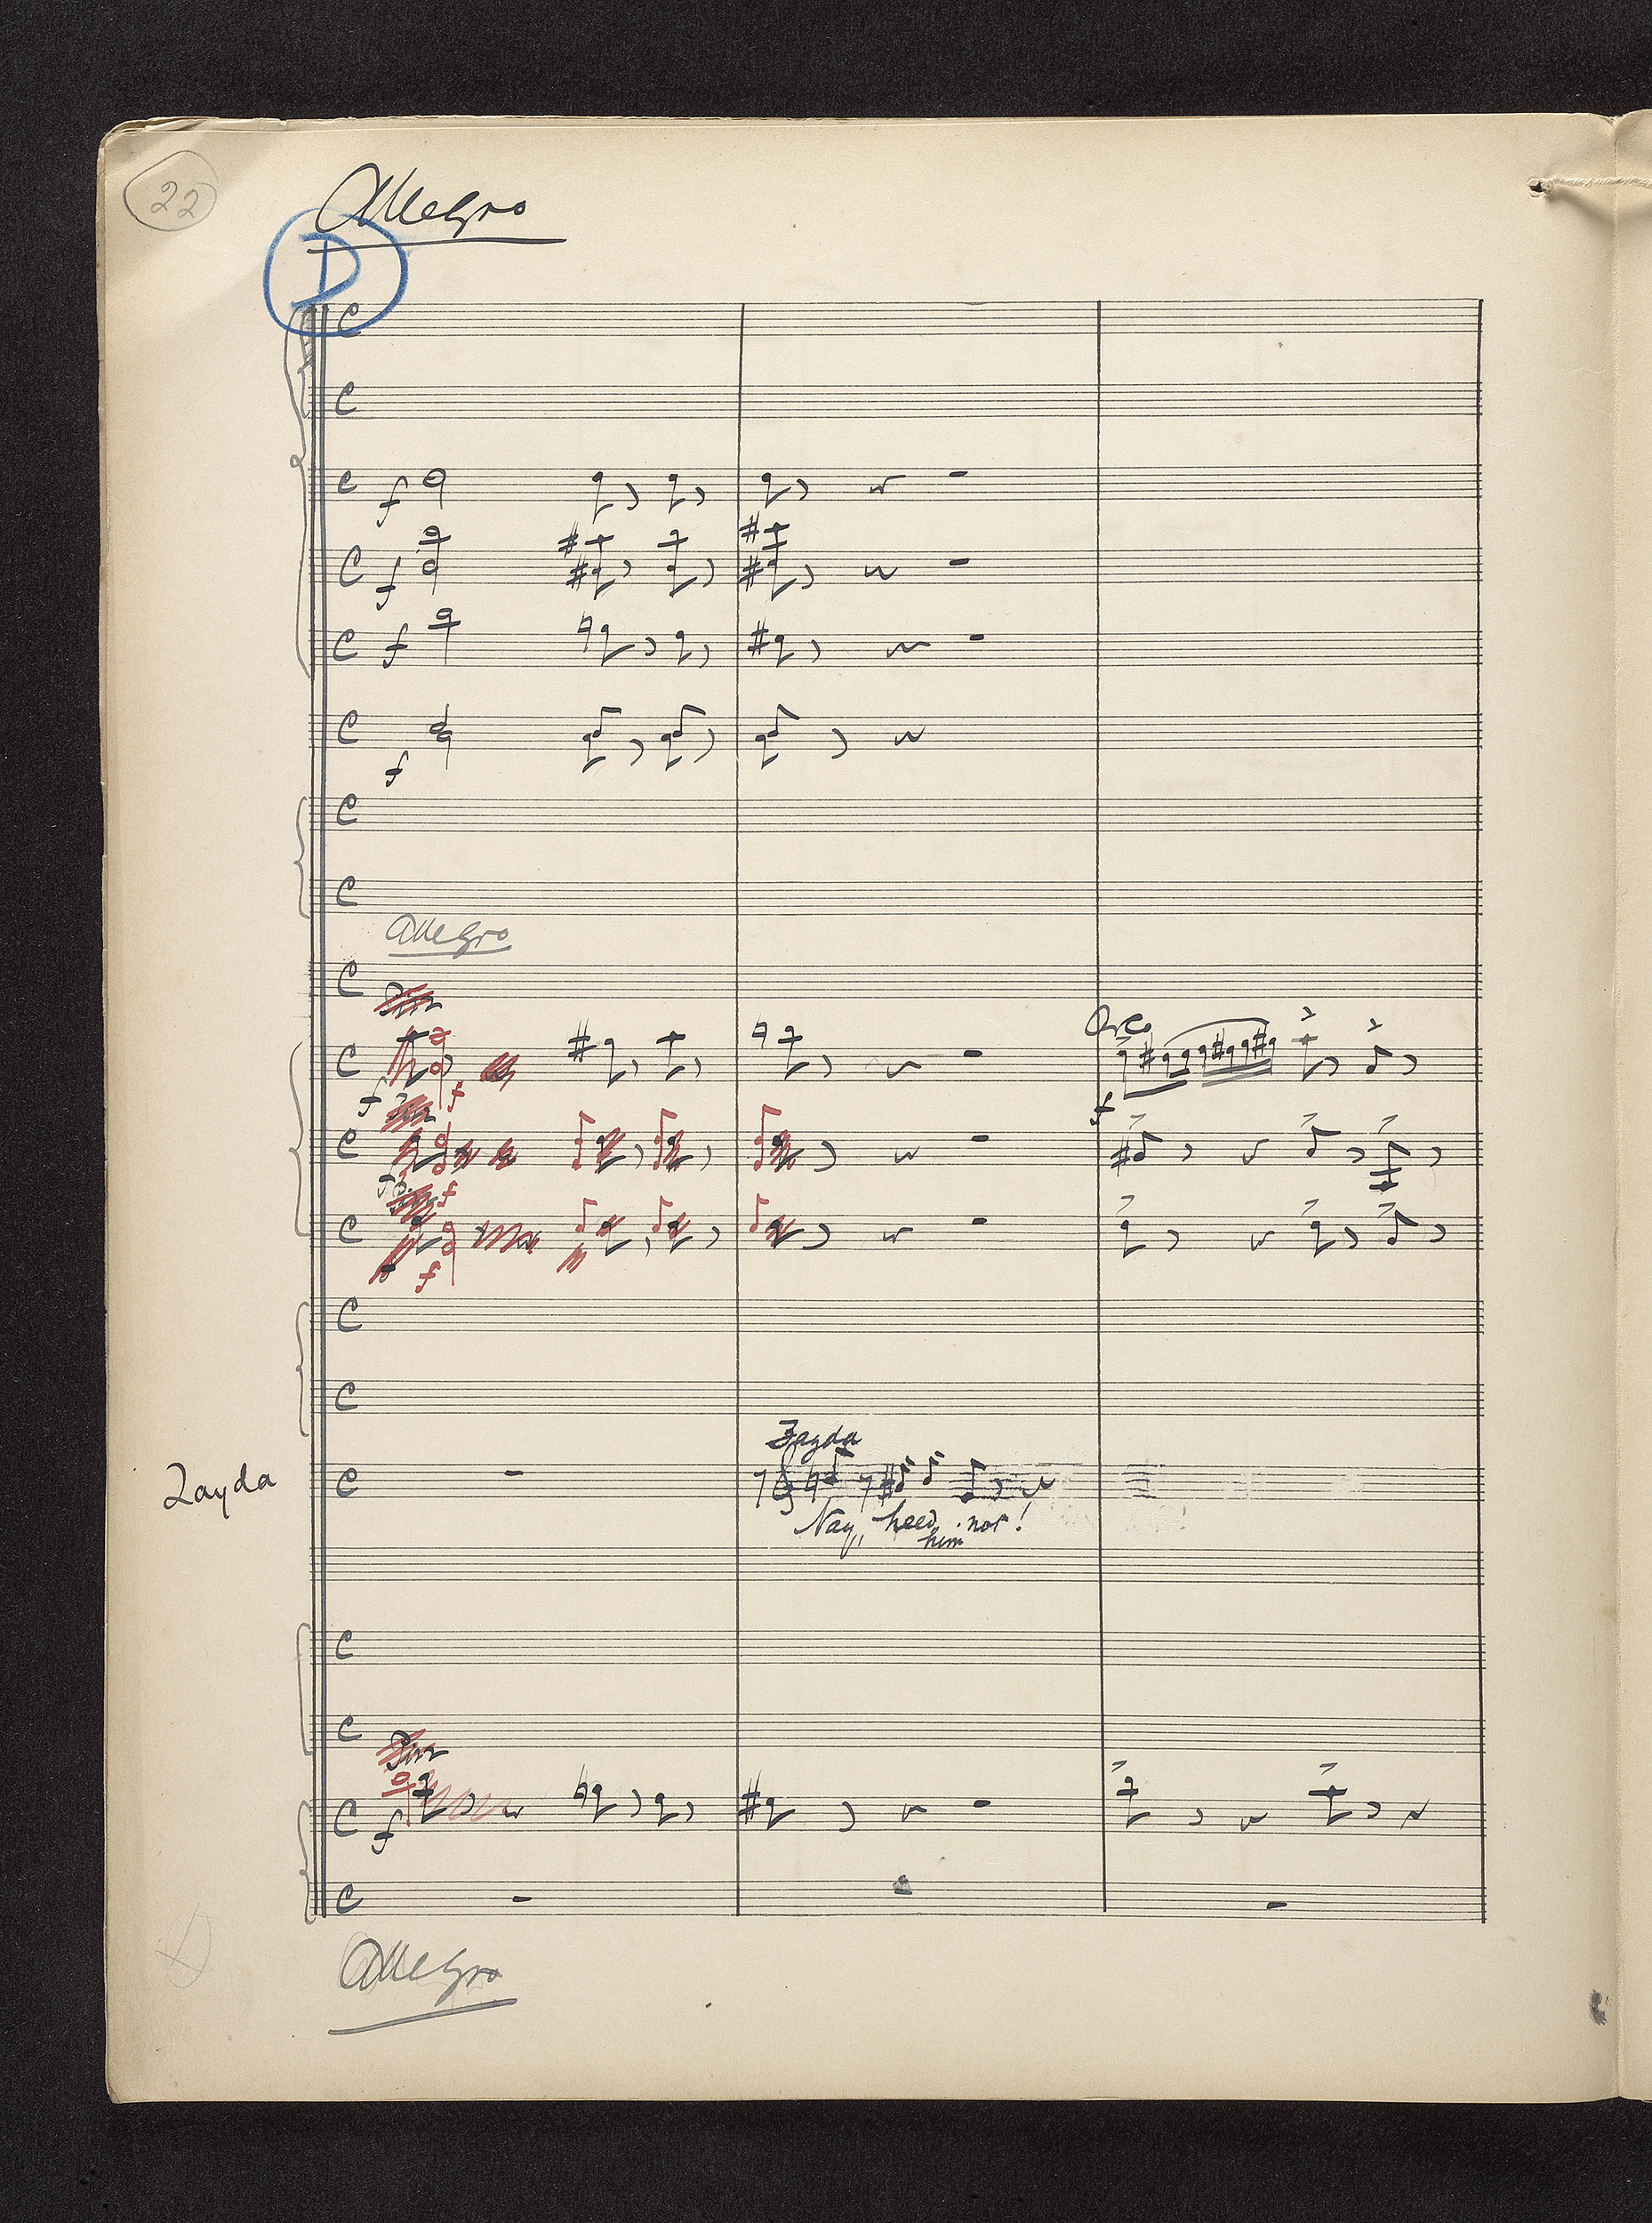 22
Allegro
D
f
f
f
f
Allegro
Arco
f
f
f
f
f
f
Zayda
Zayda
Nay, heed him not!
f
Allegro
D